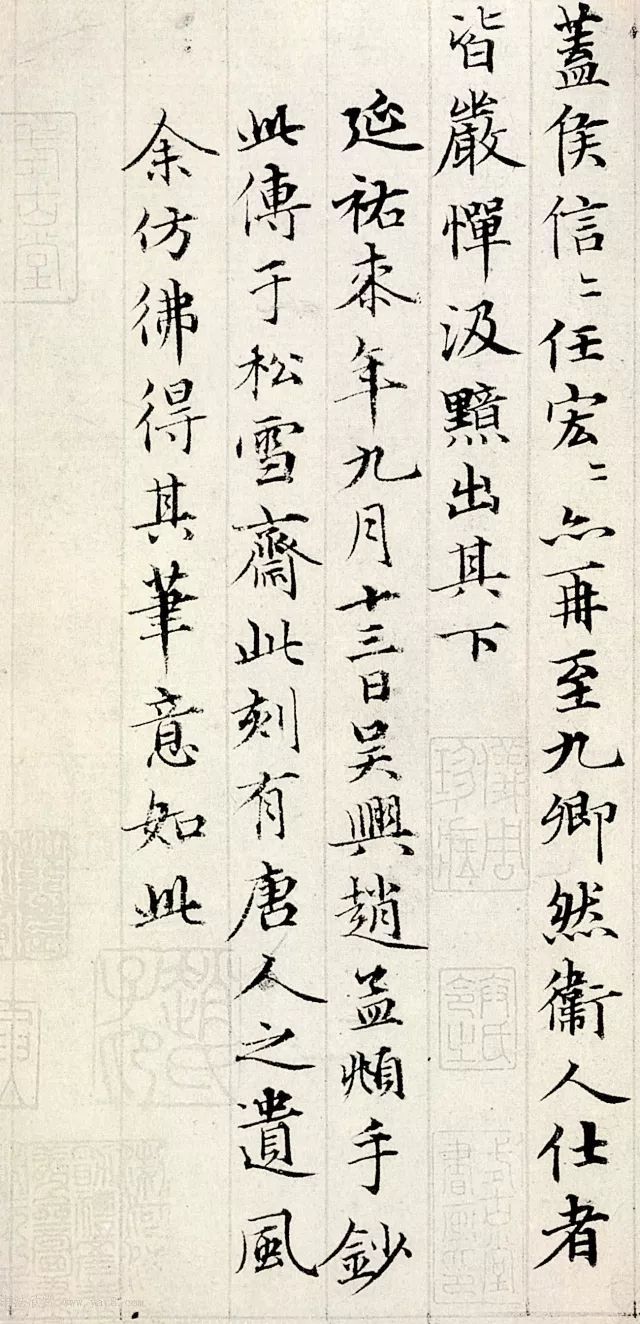 蓋侯信〻任宏〻亦再至九卿然衛人仕者
皆嚴憚汲黯出其下
延祐柒年九月十三日吴興趙孟頫手鈔
此傳于松雪齋此刻有唐人之遺風
余仿彿得其筆意如此